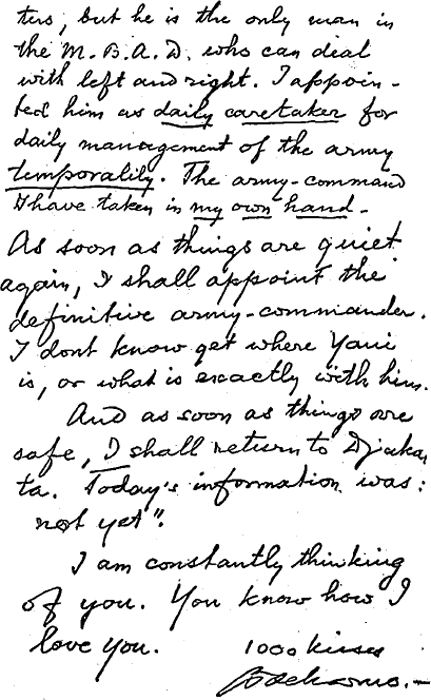 ters, but he is the only man in
the M.B.A.D. who can deal
with left and right. I appoin-
ted him as daily caretaker for
daily management of the army
temporalily. The army-command
I have taken in my own hand -
As soon as things are quiet
again, I shall appoint the
definitive army-commander.
I dont know yet where Yani
is, or what is exactly with him.
And as soon as things are
safe, I shall return to Djakar
ta. Today's information was:
not yet".
I am constantly thinking
of you. You know how I
love you. 1000 kisses
Soekarno.-